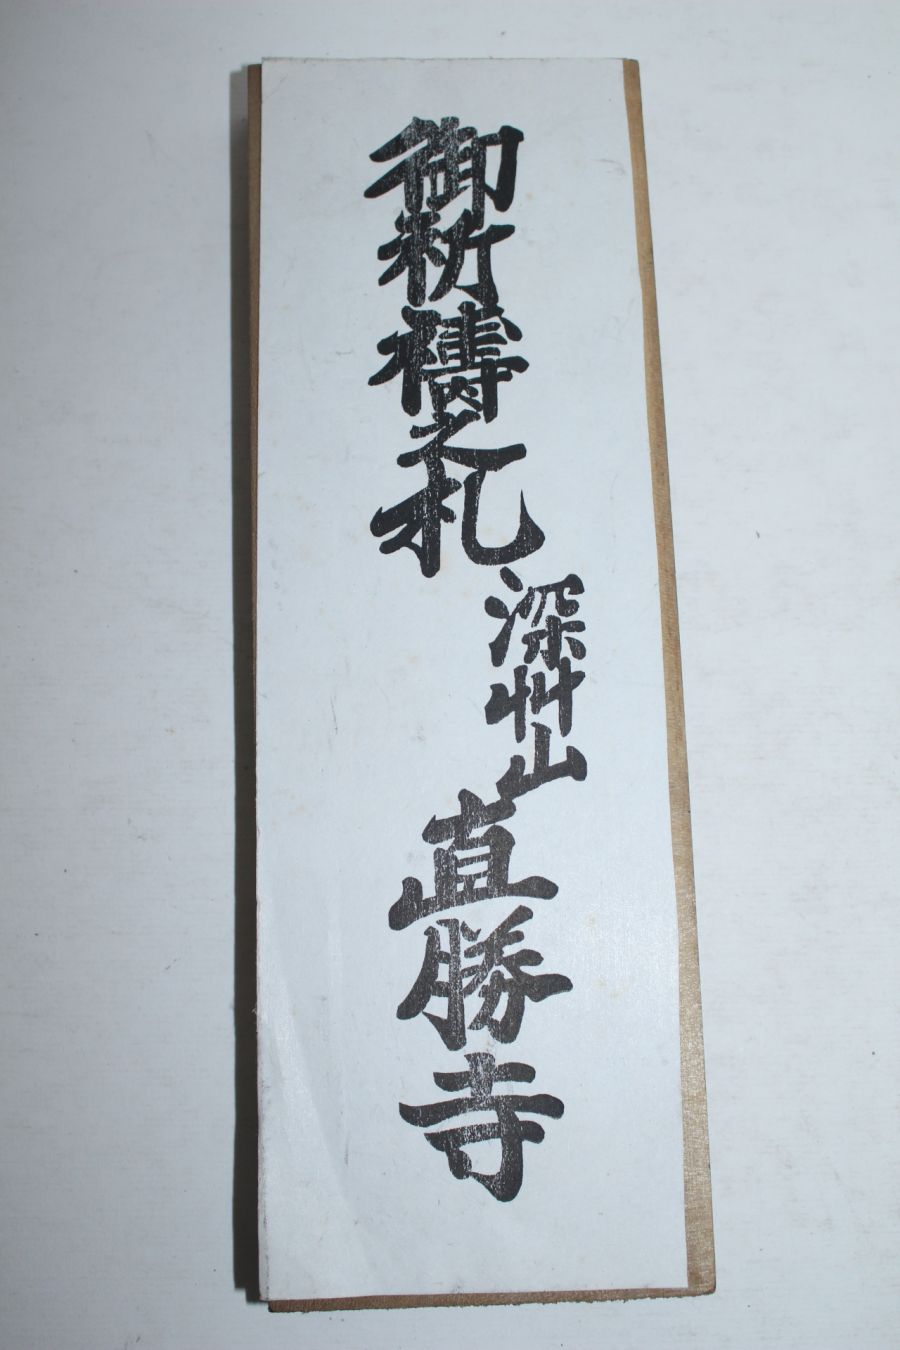 御祈禱之札
深艸山
直勝寺